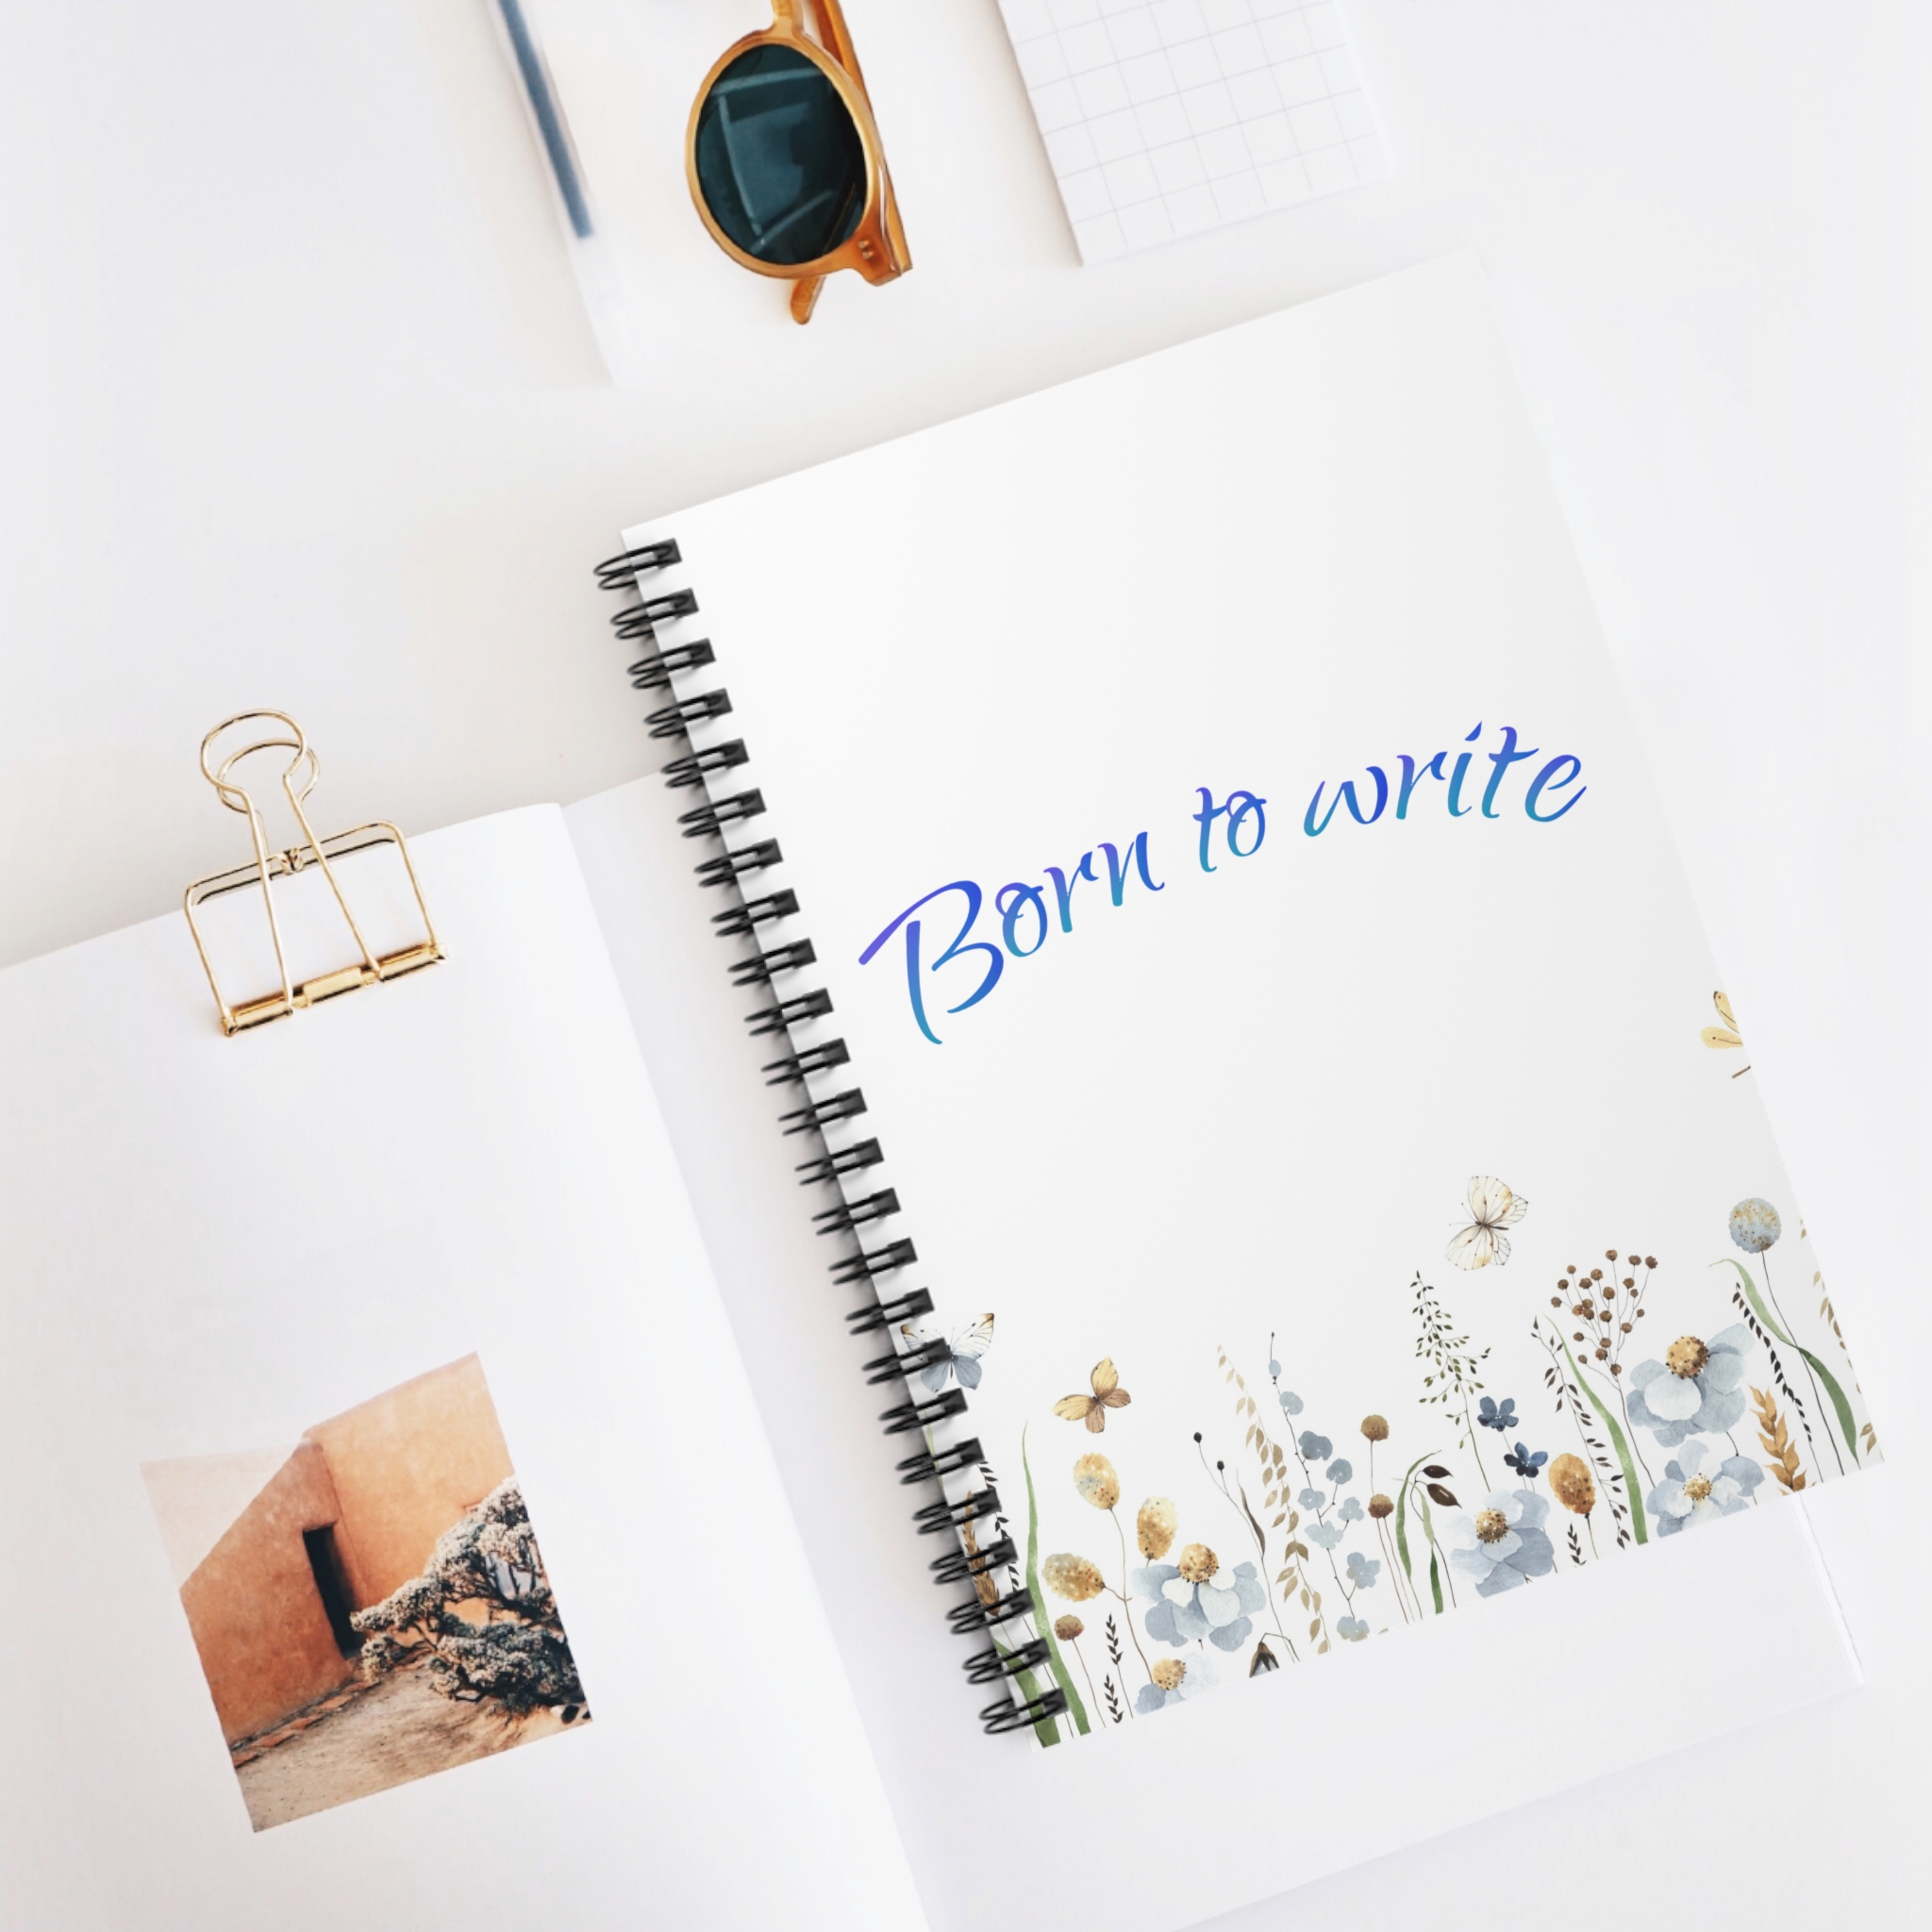 Born to write